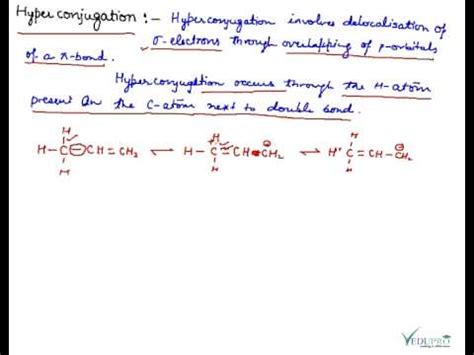 Hyperconjugation :- Hyperconjugation involves delocalisation of
σ-electrons through overlapping of p-orbitals
of a π-bond.
Hyperconjugation occurs through the H-atom
present on the C-atom next to double bond.
H H H
H-C-CH=CH2 ⇌ H-C=CH-CH2 ⇌ H+ C=CH-CH2
H H H
VEDUPRO